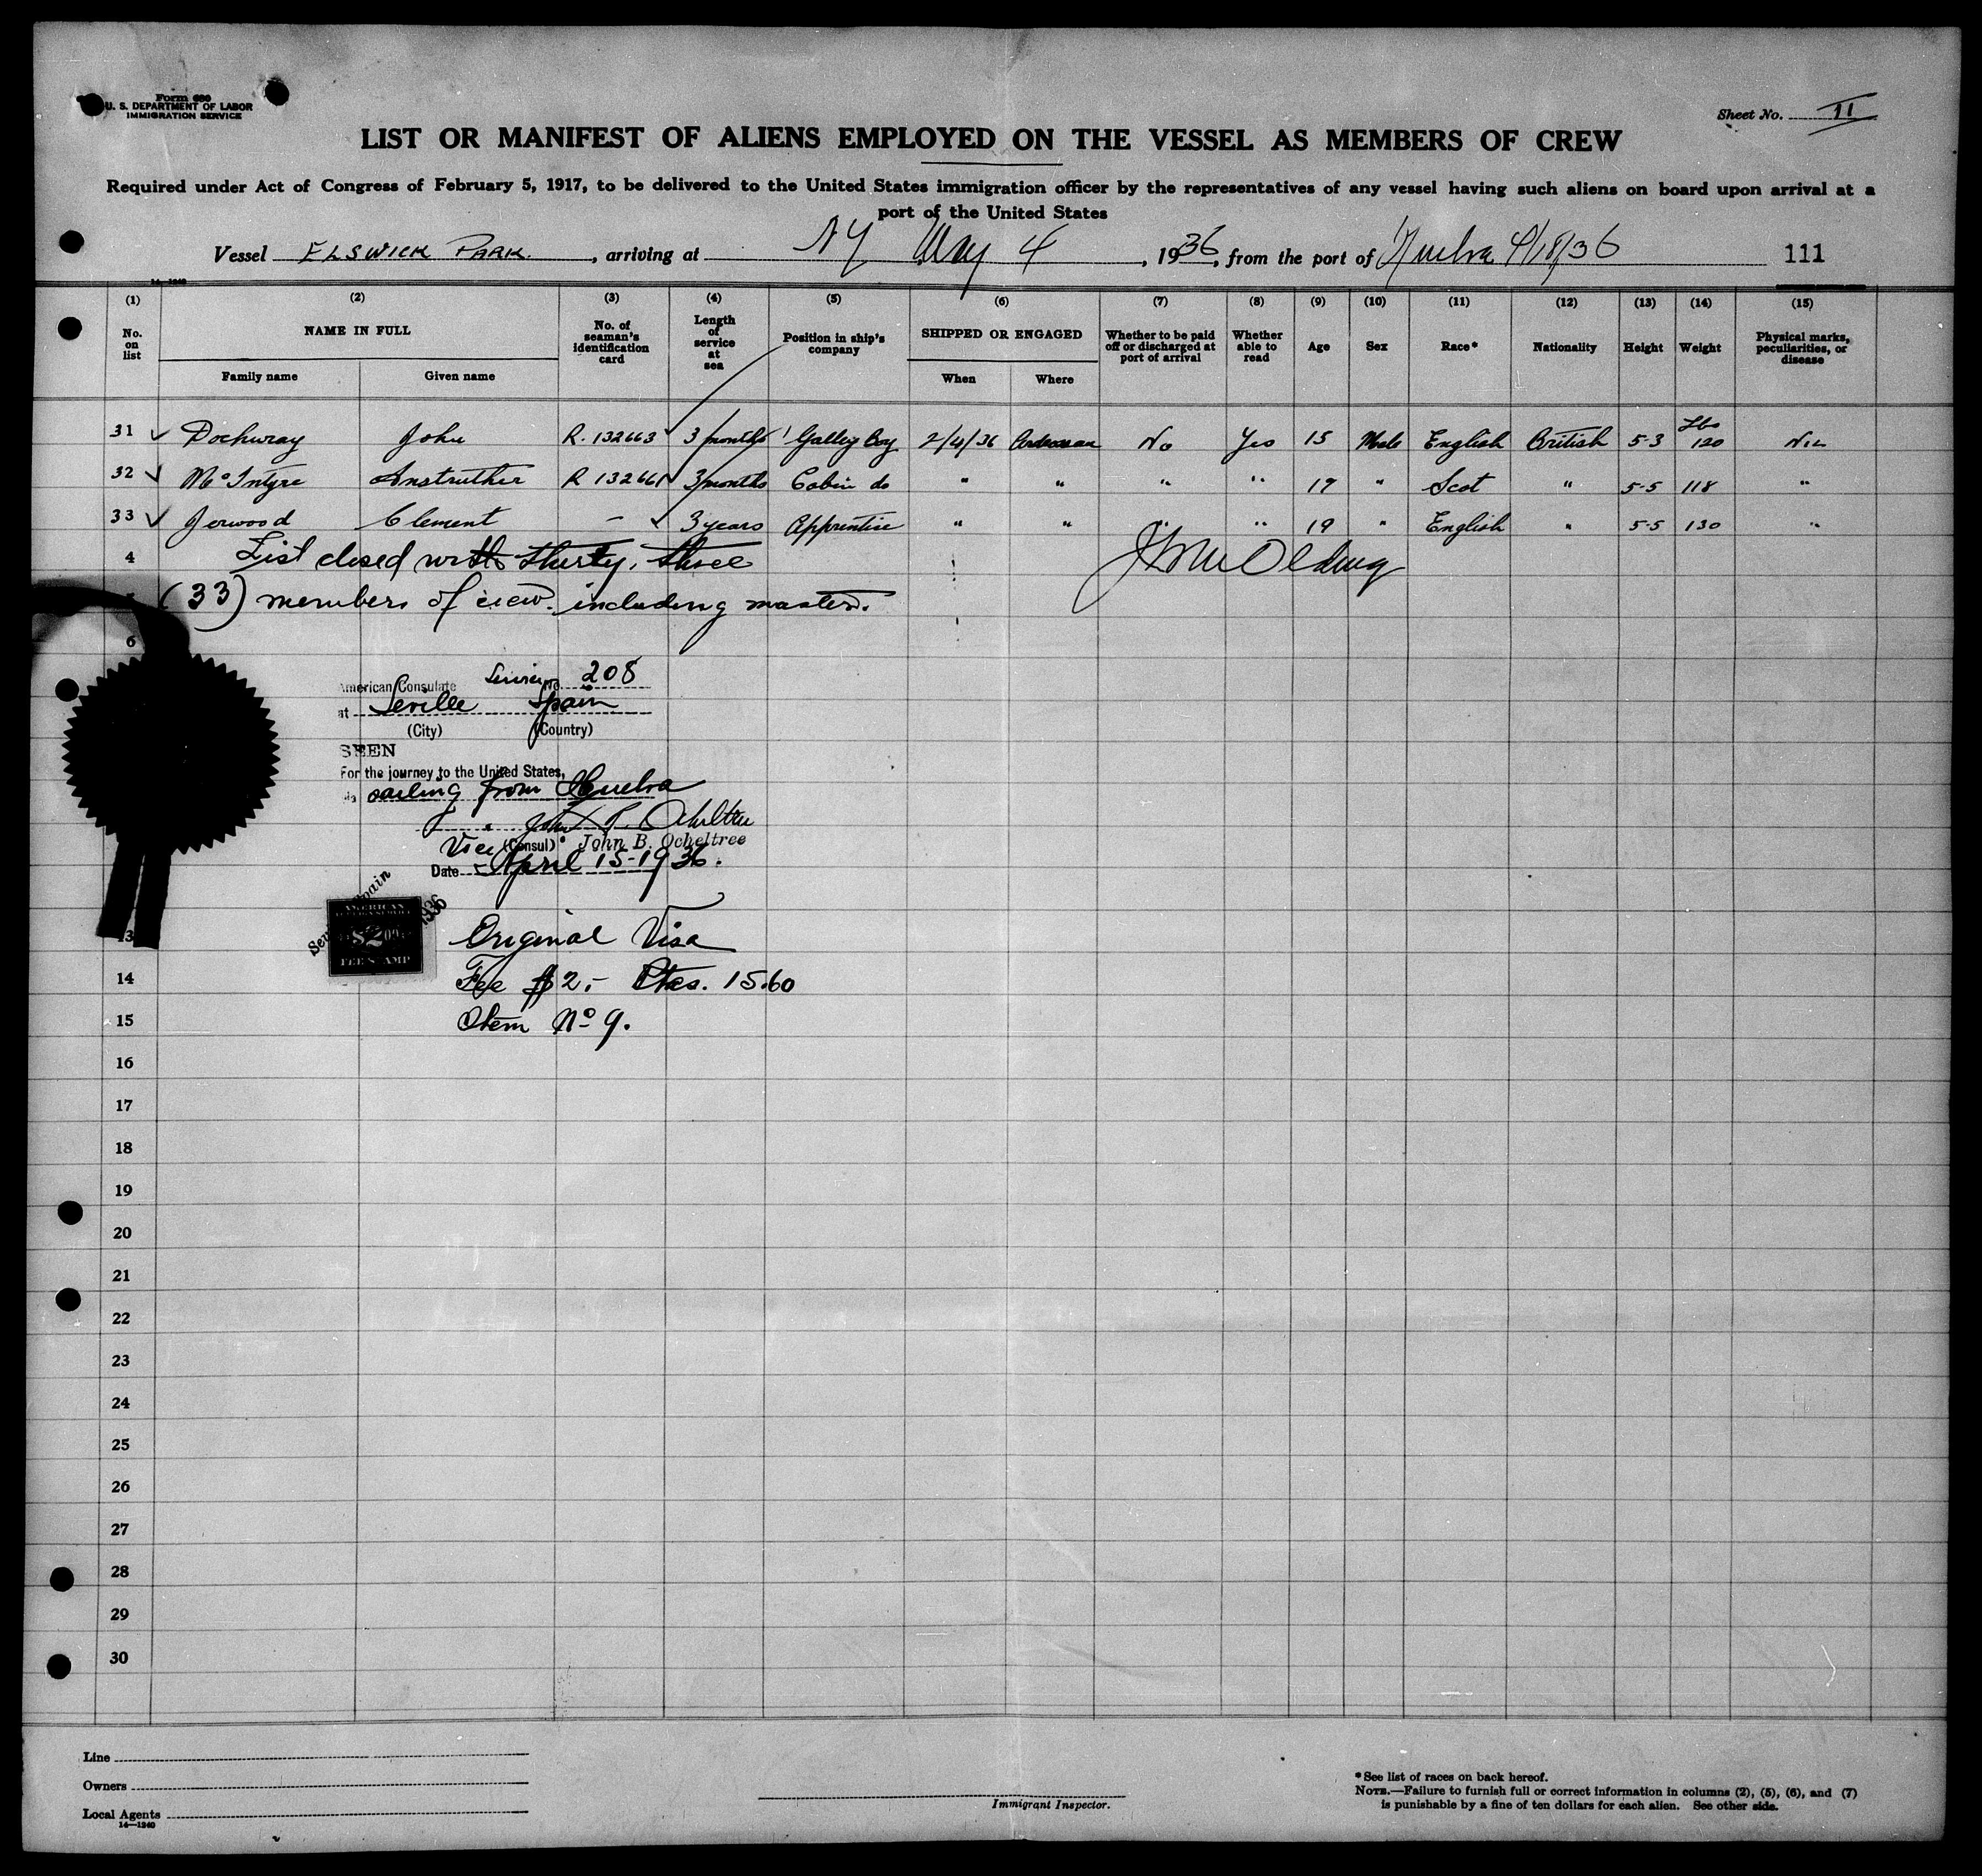 Form 680
U. S. DEPARTMENT OF LABOR
IMMIGRATION SERVICE
Sheet No. II
LIST OR MANIFEST OF ALIENS EMPLOYED ON THE VESSEL AS MEMBERS OF CREW
Required under Act of Congress of February 5, 1917, to be delivered to the United States immigration officer by the representatives of any vessel having such aliens on board upon arrival at a
port of the United States
Vessel ELSWICK PARK. , arriving at NY May 4 , 1936, from the port of Huelva 4/18/36 111
14—1240
(1) (2) (3) (4) (5) (6) (7) (8) (9) (10) (11) (12) (13) (14) (15)
No. on list NAME IN FULL No. of seaman's identification card Length of service at sea Position in ship's company SHIPPED OR ENGAGED Whether to be paid off or discharged at port of arrival Whether able to read Age Sex Race* Nationality Height Weight Physical marks, peculiarities, or disease
Family name Given name When Where
31 Dochwray John R. 132663 3 months Galley Boy 2/4/36 Ardrossan No Yes 15 Male English British 5-3 Lbs 120 Nil
32 McIntyre Anstruther R 132661 3 months Cabin do " " " " 17 " Scot " 5-5 118 "
33 Jerwood Clement - 3 years Apprentice " " " " 19 " English " 5-5 130 "
4 List closed with thirty, three
5 (33) members of crew including master.
6
American Consulate Service No. 208
at Seville Spain
(City) (Country)
SEEN
For the journey to the United States,
sailing from Huelva
Vice (Consul) John B. Ocheltree
Date April 15-1936.
Seville, Spain
1936
AMERICAN
$2.00
FEE STAMP
13 Original Visa
14 Fee $2.- Ptas. 15.60
15 Item No 9.
16
17
18
19
20
21
22
23
24
25
26
27
28
29
30
Line
Owners
Local Agents
14—1240
Immigrant Inspector.
*See list of races on back hereof.
NOTE.—Failure to furnish full or correct information in columns (2), (5), (6), and (7)
is punishable by a fine of ten dollars for each alien. See other side.